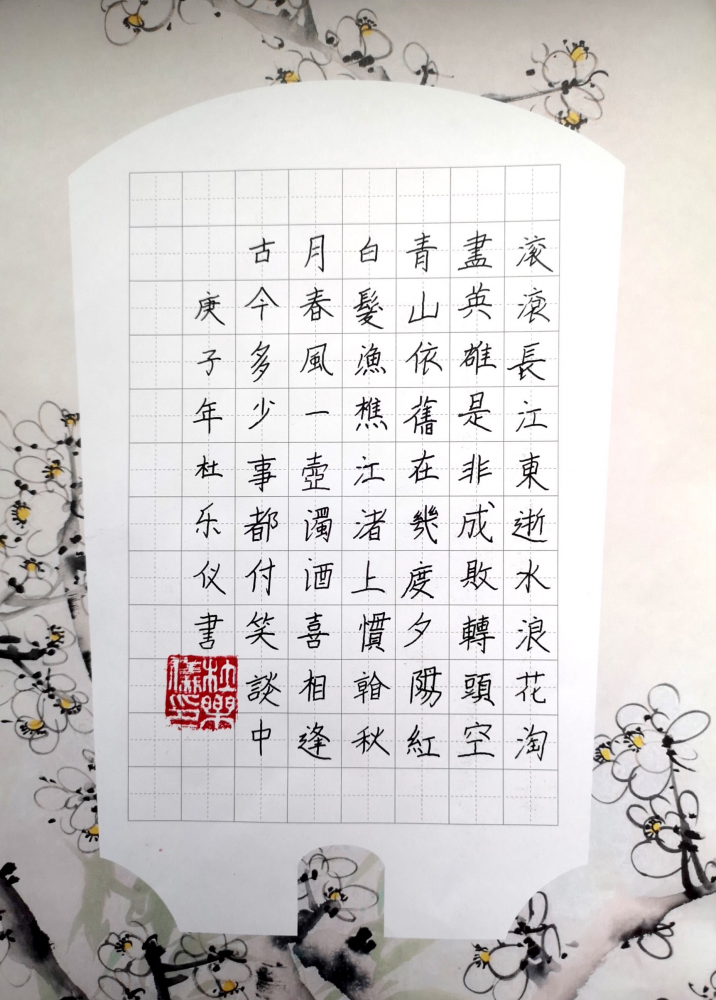 滚滚長江東逝水浪花淘
盡英雄是非成敗轉頭空
青山依舊在幾度夕陽紅
白髮漁樵江渚上慣看秋
月春風一壺濁酒喜相逢
古今多少事都付笑談中
庚子年杜乐仪書
杜樂
儀印